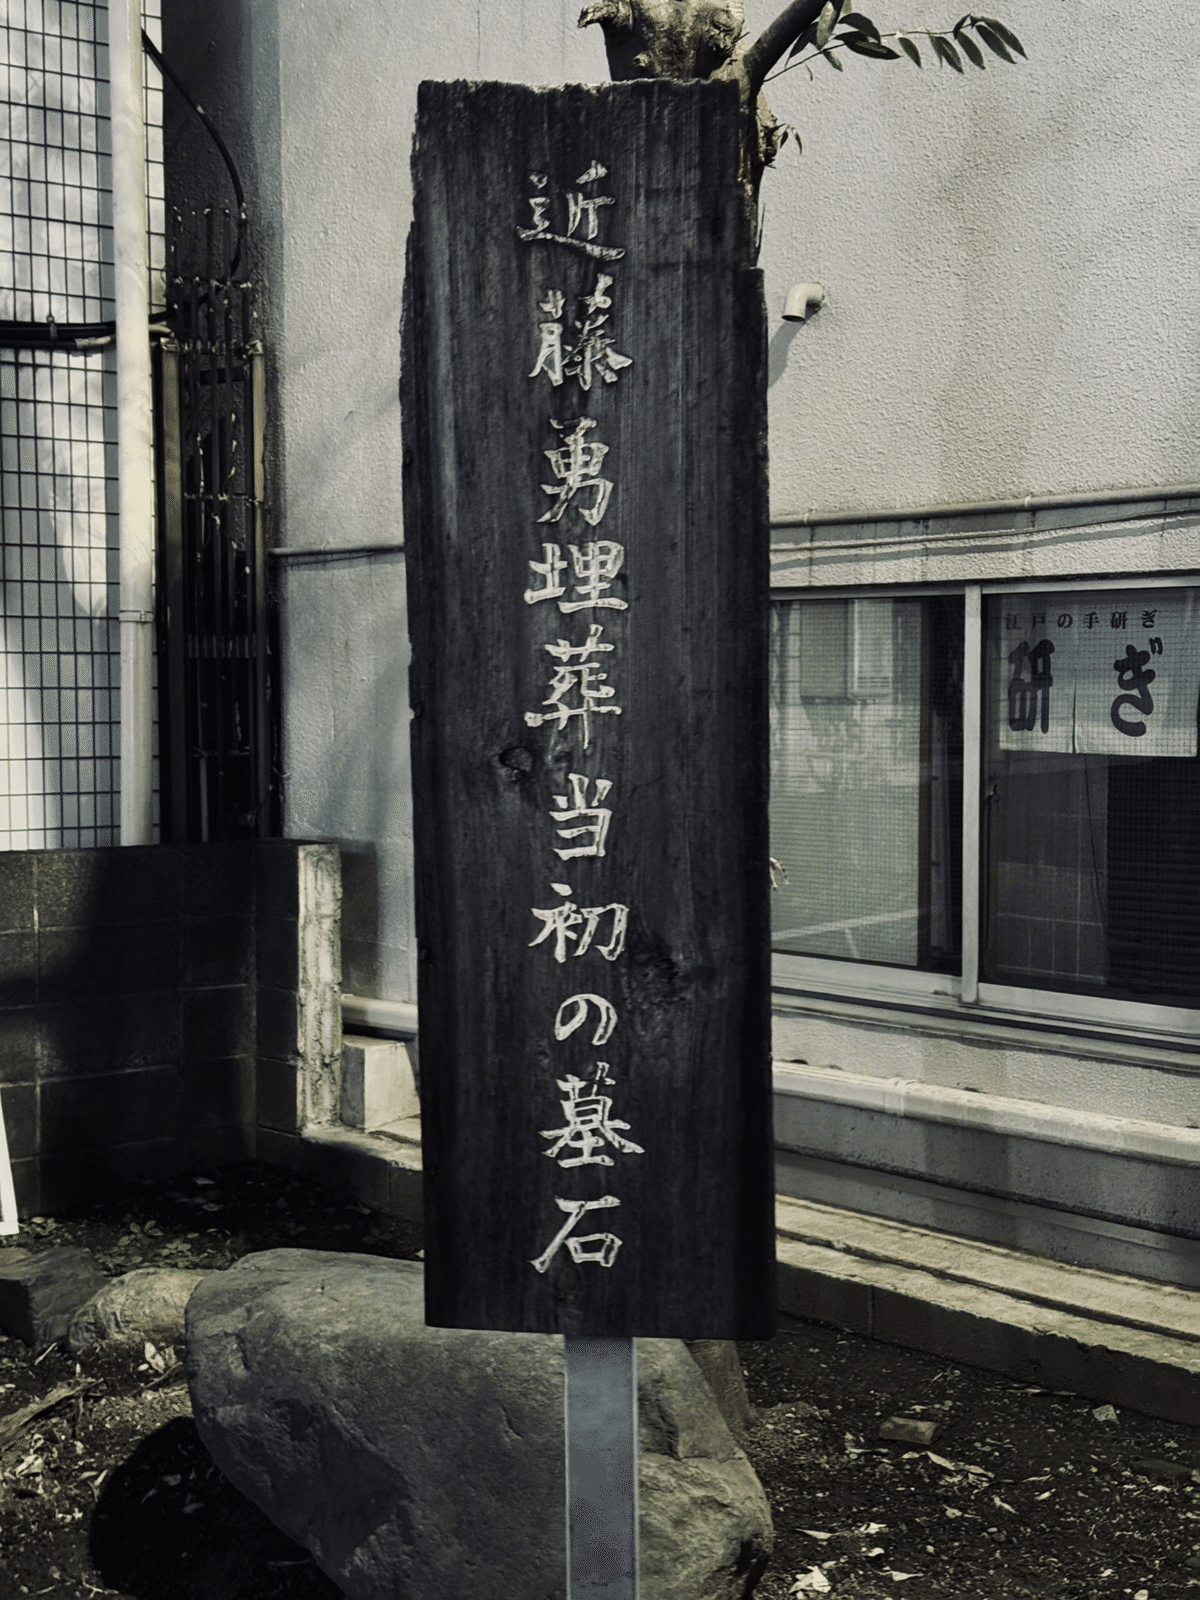 近藤勇埋葬当初の墓石
江戸の手研ぎ
研ぎ